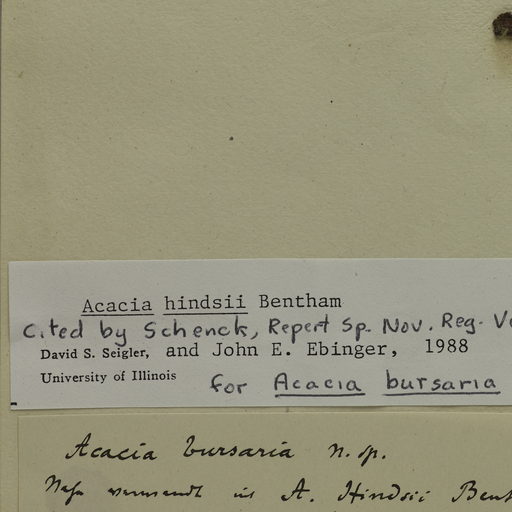 Acacia hindsii Bentham
Cited by Schenck, Repert Sp. Nov. Reg. V
David S. Seigler, and John E. Ebinger, 1988
University of Illinois for Acacia bursaria
Acacia bursaria n. sp.
A. Hindsii Bent